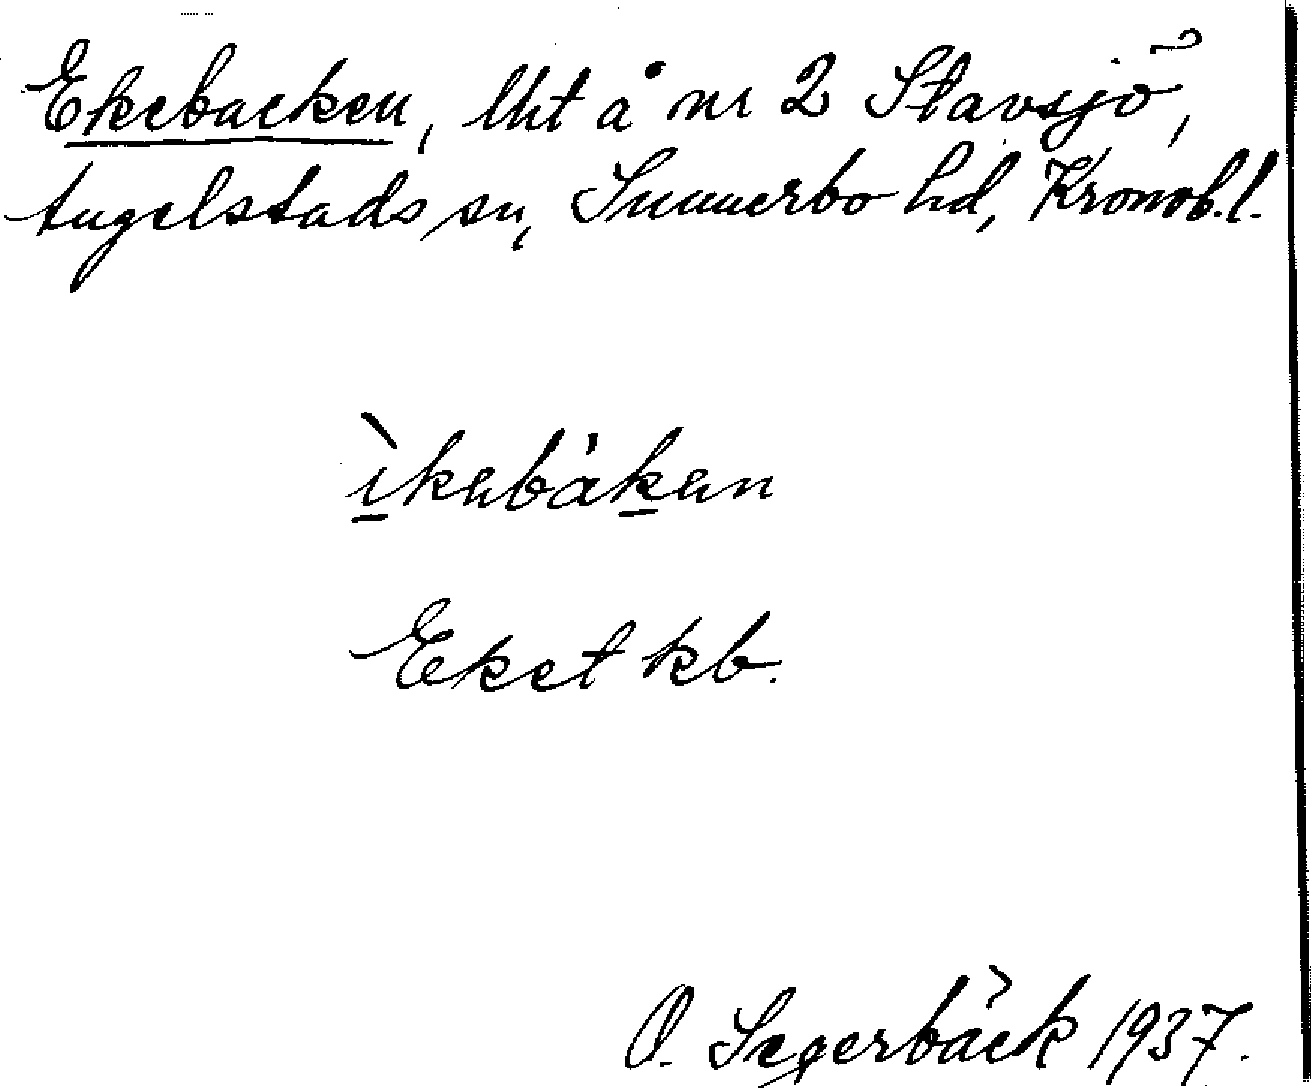 Ekebacken, lht å nr 2 Stavsjö,
Angelstads sn, Sunnerbo hd, Kronob. l.
ìkabákan
Eket kb.
O. Segerbäck 1937.